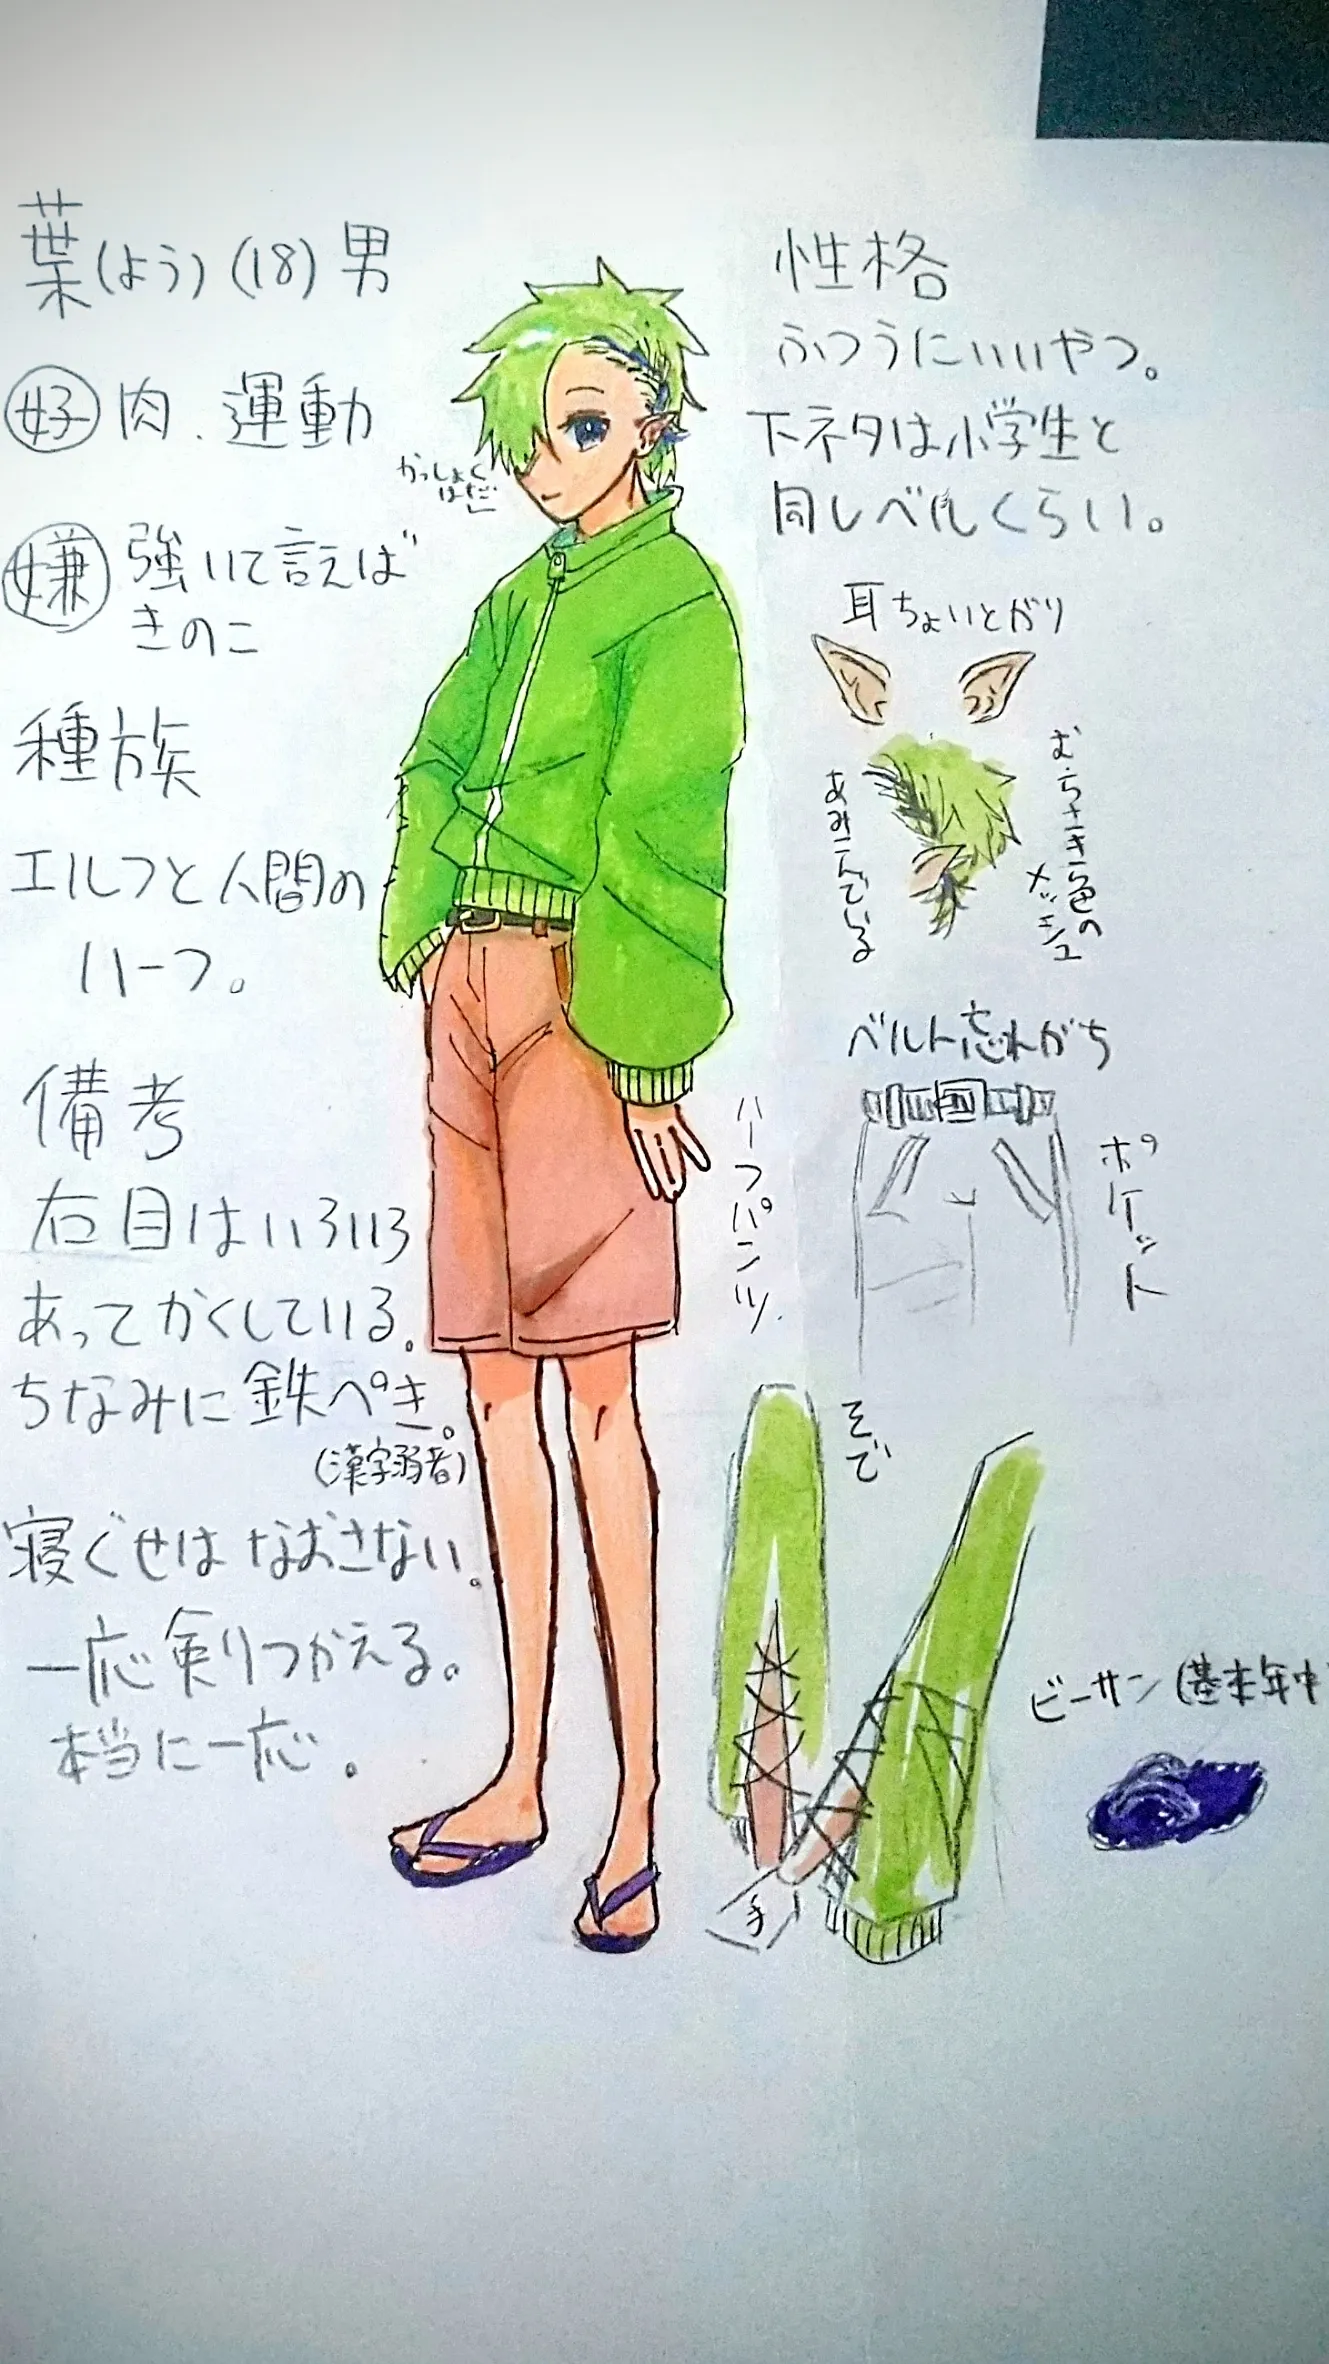 葉(よう)(18)男
好 肉、運動
嫌 強いて言えば
きのこ
種族
エルフと人間の
ハーフ。
備考
右目はいろいろ
あってかくしている。
ちなみに鉄ぺき。
(漢字弱者)
寝ぐせはなおさない。
一応剣りつかえる。
本当に一応。
かっしょく
はだ
性格
ふつうにいいやつ。
下ネタは小学生と
同レベルくらい。
耳ちょいとがり
むらさき色の
メッシュ
あみこんでいる
ベルト忘れがち
ポケット
ハーフパンツ
そで
手
ビーサン(基本年中